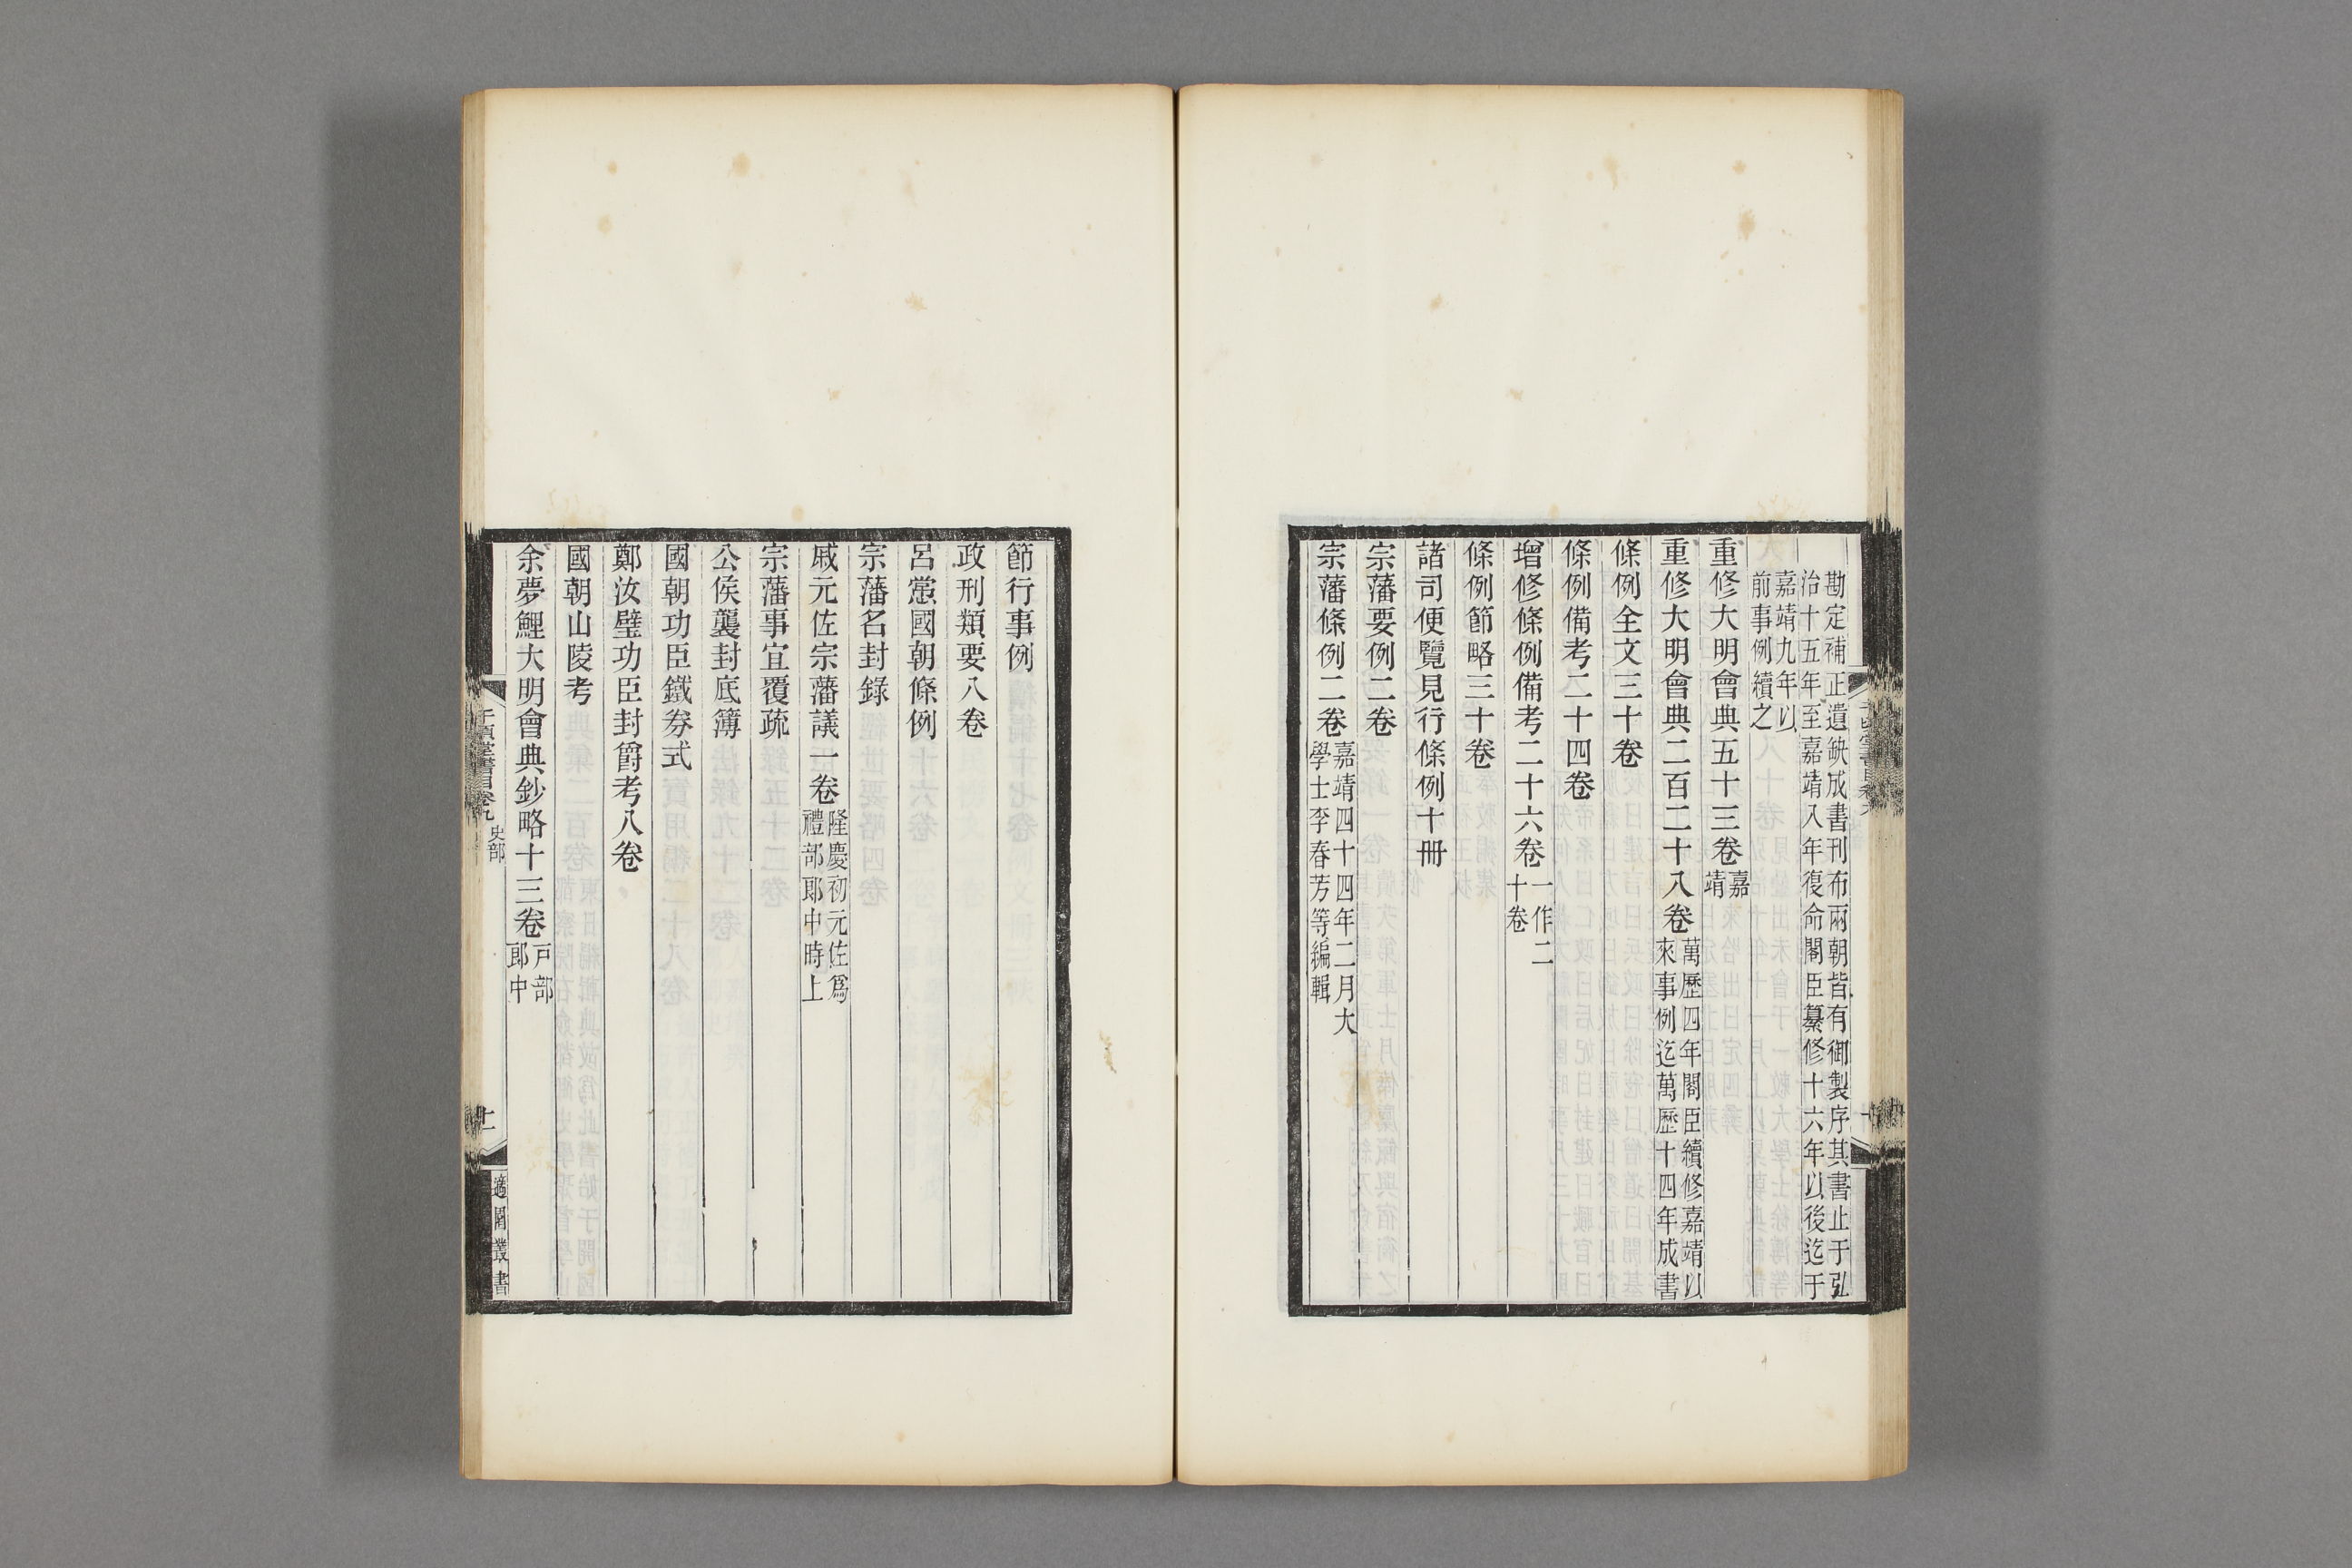 勘定補正遺缺成書刊布兩朝皆有御製序其書止于弘
治十五年至嘉靖入年復命閣臣纂修十六年以後迄于
嘉靖九年以
前事例續之
重修大明會典五十三卷嘉
靖
重修大明會典二百二十八卷萬歷四年閣臣續修嘉靖以
來事例迄萬歷十四年成書
條例全文三十卷
條例備考二十四卷
增修條例備考二十六卷一作二
十卷
條例節略三十卷
諸司便覽見行條例十冊
宗藩要例二卷
宗藩條例二卷嘉靖四十四年二月大
學士李春芳等編輯
節行事例
政刑類要八卷
呂㦂國朝條例
宗藩名封錄
戚元佐宗藩議一卷隆慶初元佐爲
禮部郎中時上
宗藩事宜覆疏
公侯襲封底簿
國朝功臣鐵券式
鄭汝璧功臣封爵考八卷
國朝山陵考
余夢鯉大明會典鈔略十三卷戸部
郎中
千頃堂書目卷九 史部
十一
適園叢書